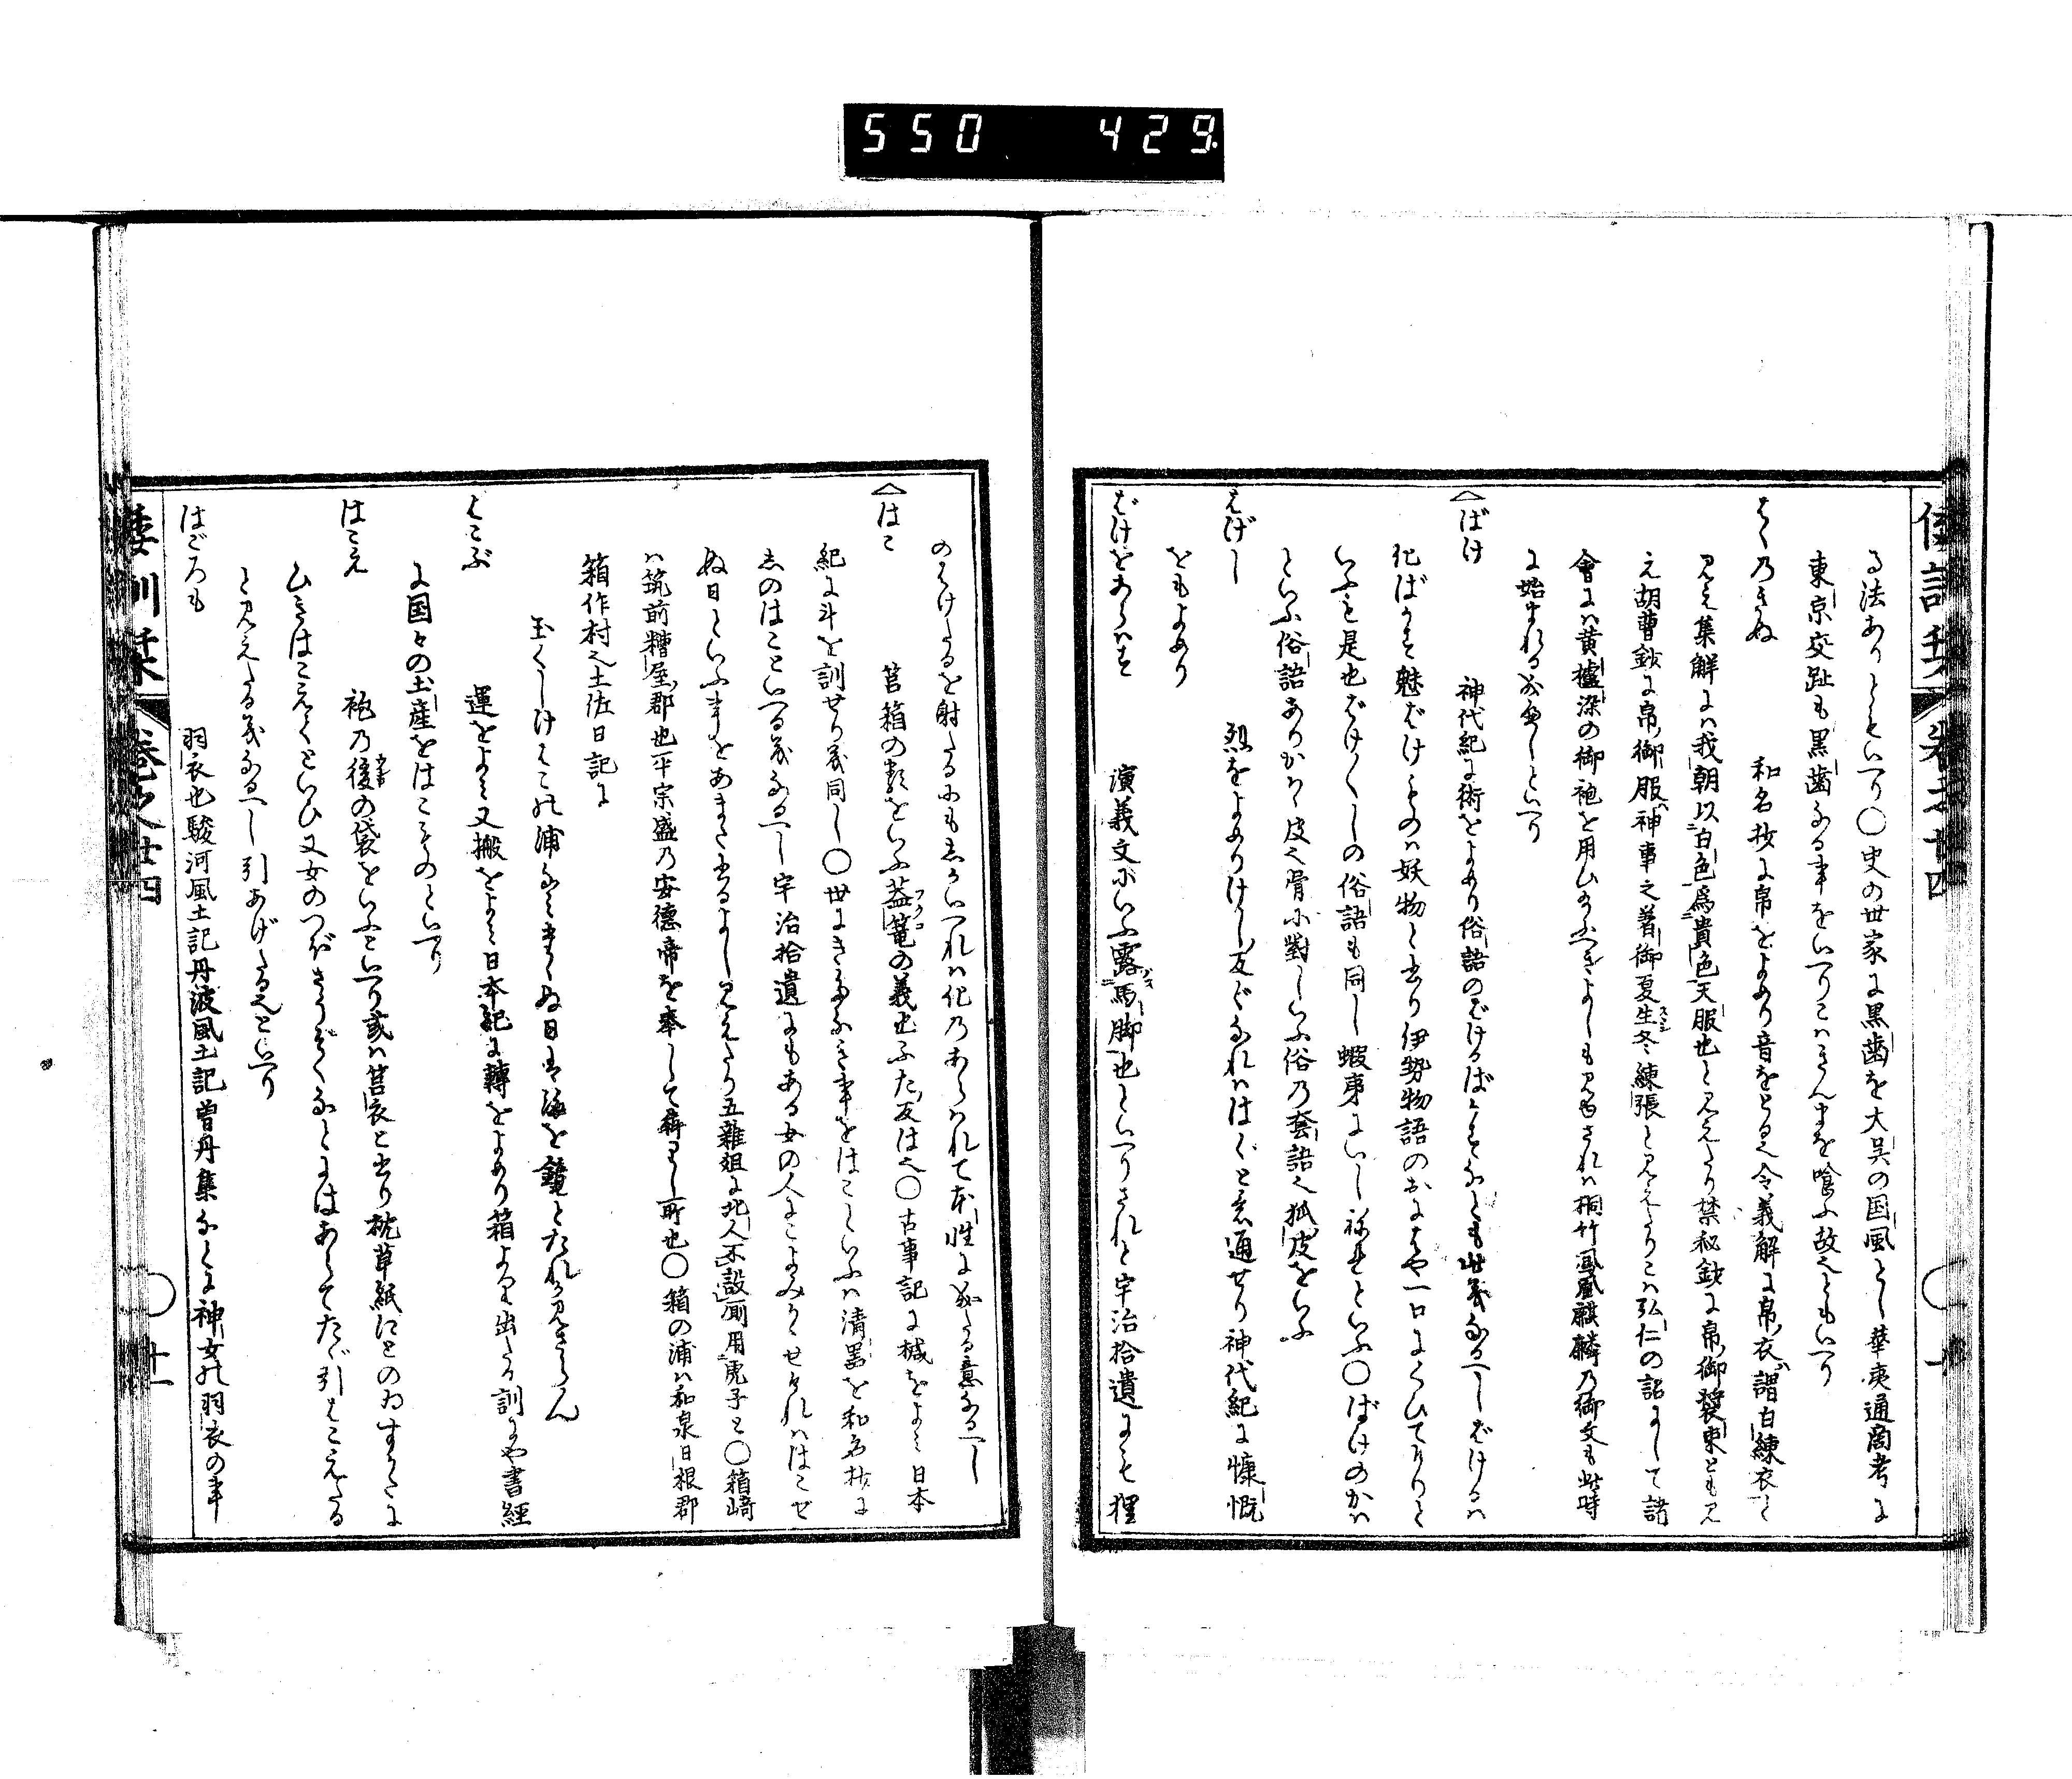 550 429
る法ありともいへり○史の世家に黒歯を大呉の国風とし華夷通商考に
東京交趾も黒歯なる事をいへりこはきんまを喰ふ故之ともいへり
はくのきぬ 和名抄に帛をよめり音をとる之令義解に帛衣謂白練衣と
見え集解には我朝以白色為貴色天服也と見えたり禁秘鈔に帛御装束とも見
え胡曹鈔に帛御服神事之着御夏生冬練張と見えたりこは弘仁の詔にして諸
會には黄櫨染の御袍を用ひ給ふべきよしも見ゆされは桐竹鳳凰麒麟乃御文も此時
に始まれる成へしといへり
へばけ 神代紀に術をよめり俗語のばけるばかすなとも此義なるへしばけるは
化ばかす魅ばけものは妖物と書り伊勢物語のおにはや一口にくひてけりと
いふも是也ばけ〳〵しの俗語も同し蝦夷にいし祢せといふ○ばけのかは
といふ俗語ありかは皮之骨に對しいふ俗乃套語之狐皮をいふ
はげし 烈をよめりけし反ぎなれははぎと意通せり神代紀に慷慨
をもよめり
ばけをあらはす 演義文にいふ露馬脚也といへりされと宇治拾遺にも狸
のはけたるを射たるにもあらいつれは化乃あらはれて本性に成たる意なるへし
へはこ 筥箱の類をいふ蓋篭の義也ふた反は之○古事記に椷をよみ日本
紀に斗を訓せり義同し○世にきたなき事をはことといふは清器を和名抄に
しのはこといへる義なるへし宇治拾遺にもある女の人によみかゝせけれははこせ
ぬ日といふ事をあまた書るよし見えたり五雜俎に北人不設厠用虎子と○箱崎
は筑前糟屋郡也平宗盛乃安徳帝を奉して奔りし所也○箱の浦は和泉日根郡
箱作村之土佐日記に
玉くしけはこの浦なみたゝぬ日は海を鏡とたれか見さらん
はこぶ 運をよみ又搬をよみ日本紀に轉をよめり箱より出たる訓にや書經
に国々の土産をはこものといへり
はこえ 袍乃後の袋をいふといへり或は筥衣と書り枕草紙にとのゐすかたに
ひきはこえてといひ又女のつぼさうぞくなとにはあらてたゞ引はこえたる
と見えたる義なるへし引あげたる之といへり
はごろも 羽衣也駿河風土記丹波風土記曽丹集なとに神女の羽衣の事
倭訓栞 巻之廿四 十一